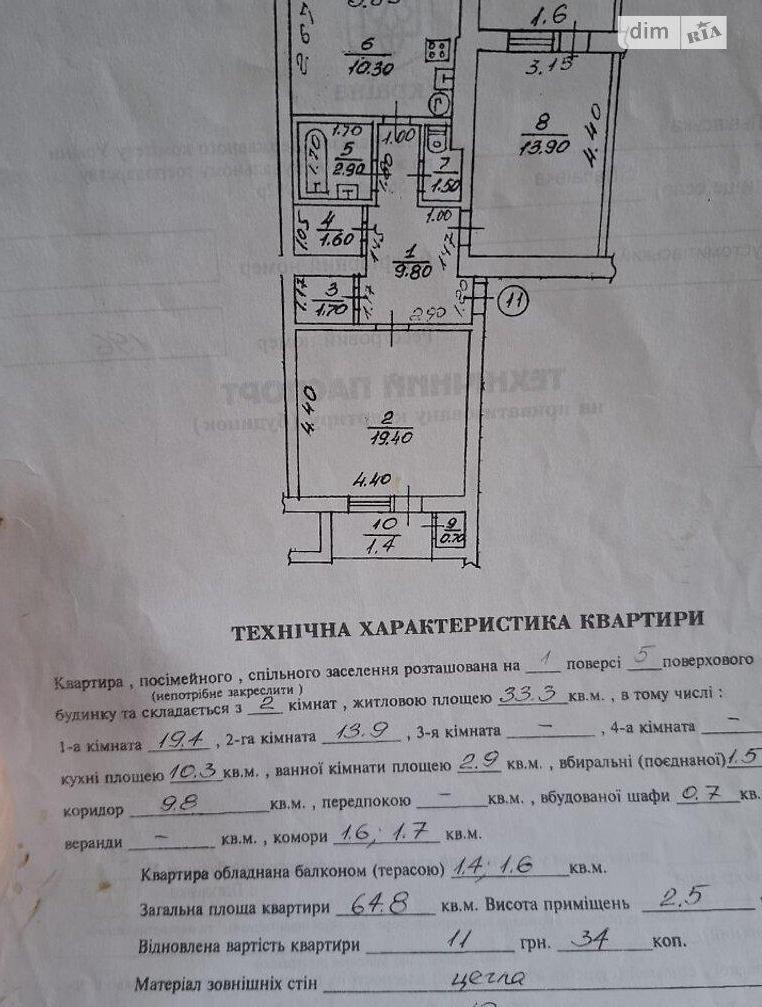 1.6
dim RIA
6
10.30
3.15
8
13.90
4.40
1.70
1.00
5
2.90
1.70
7
1.50
Г
1.00
4
1.60
1.05
1
9.80
1.47
3
1.70
1.17
1.17
2.90
1.20
11
4.40
2
19.40
4.40
10
1.4
9
0.70
ТЕХНІЧНА ХАРАКТЕРИСТИКА КВАРТИРИ
Квартира , посімейного , спільного заселення розташована на 1 поверсі 5 поверхового
(непотрібне закреслити )
будинку та складається з 2 кімнат , житловою площею 33.3 кв.м. , в тому числі :
1-а кімната 19.4 , 2-га кімната 13.9 , 3-я кімната – , 4-а кімната –
кухні площею 10.3 кв.м. , ванної кімнати площею 2.9 кв.м. , вбиральні (поєднаної) 1.5
коридор 9.8 кв.м. , передпокою – кв.м. , вбудованої шафи 0.7 кв.
веранди – кв.м. , комори 1.6; 1.7 кв.м.
Квартира обладнана балконом (терасою) 1.4; 1.6 кв.м.
Загальна площа квартири 64.8 кв.м. Висота приміщень 2.5
Відновлена вартість квартири 11 грн. 34 коп.
Матеріал зовнішніх стін цегла